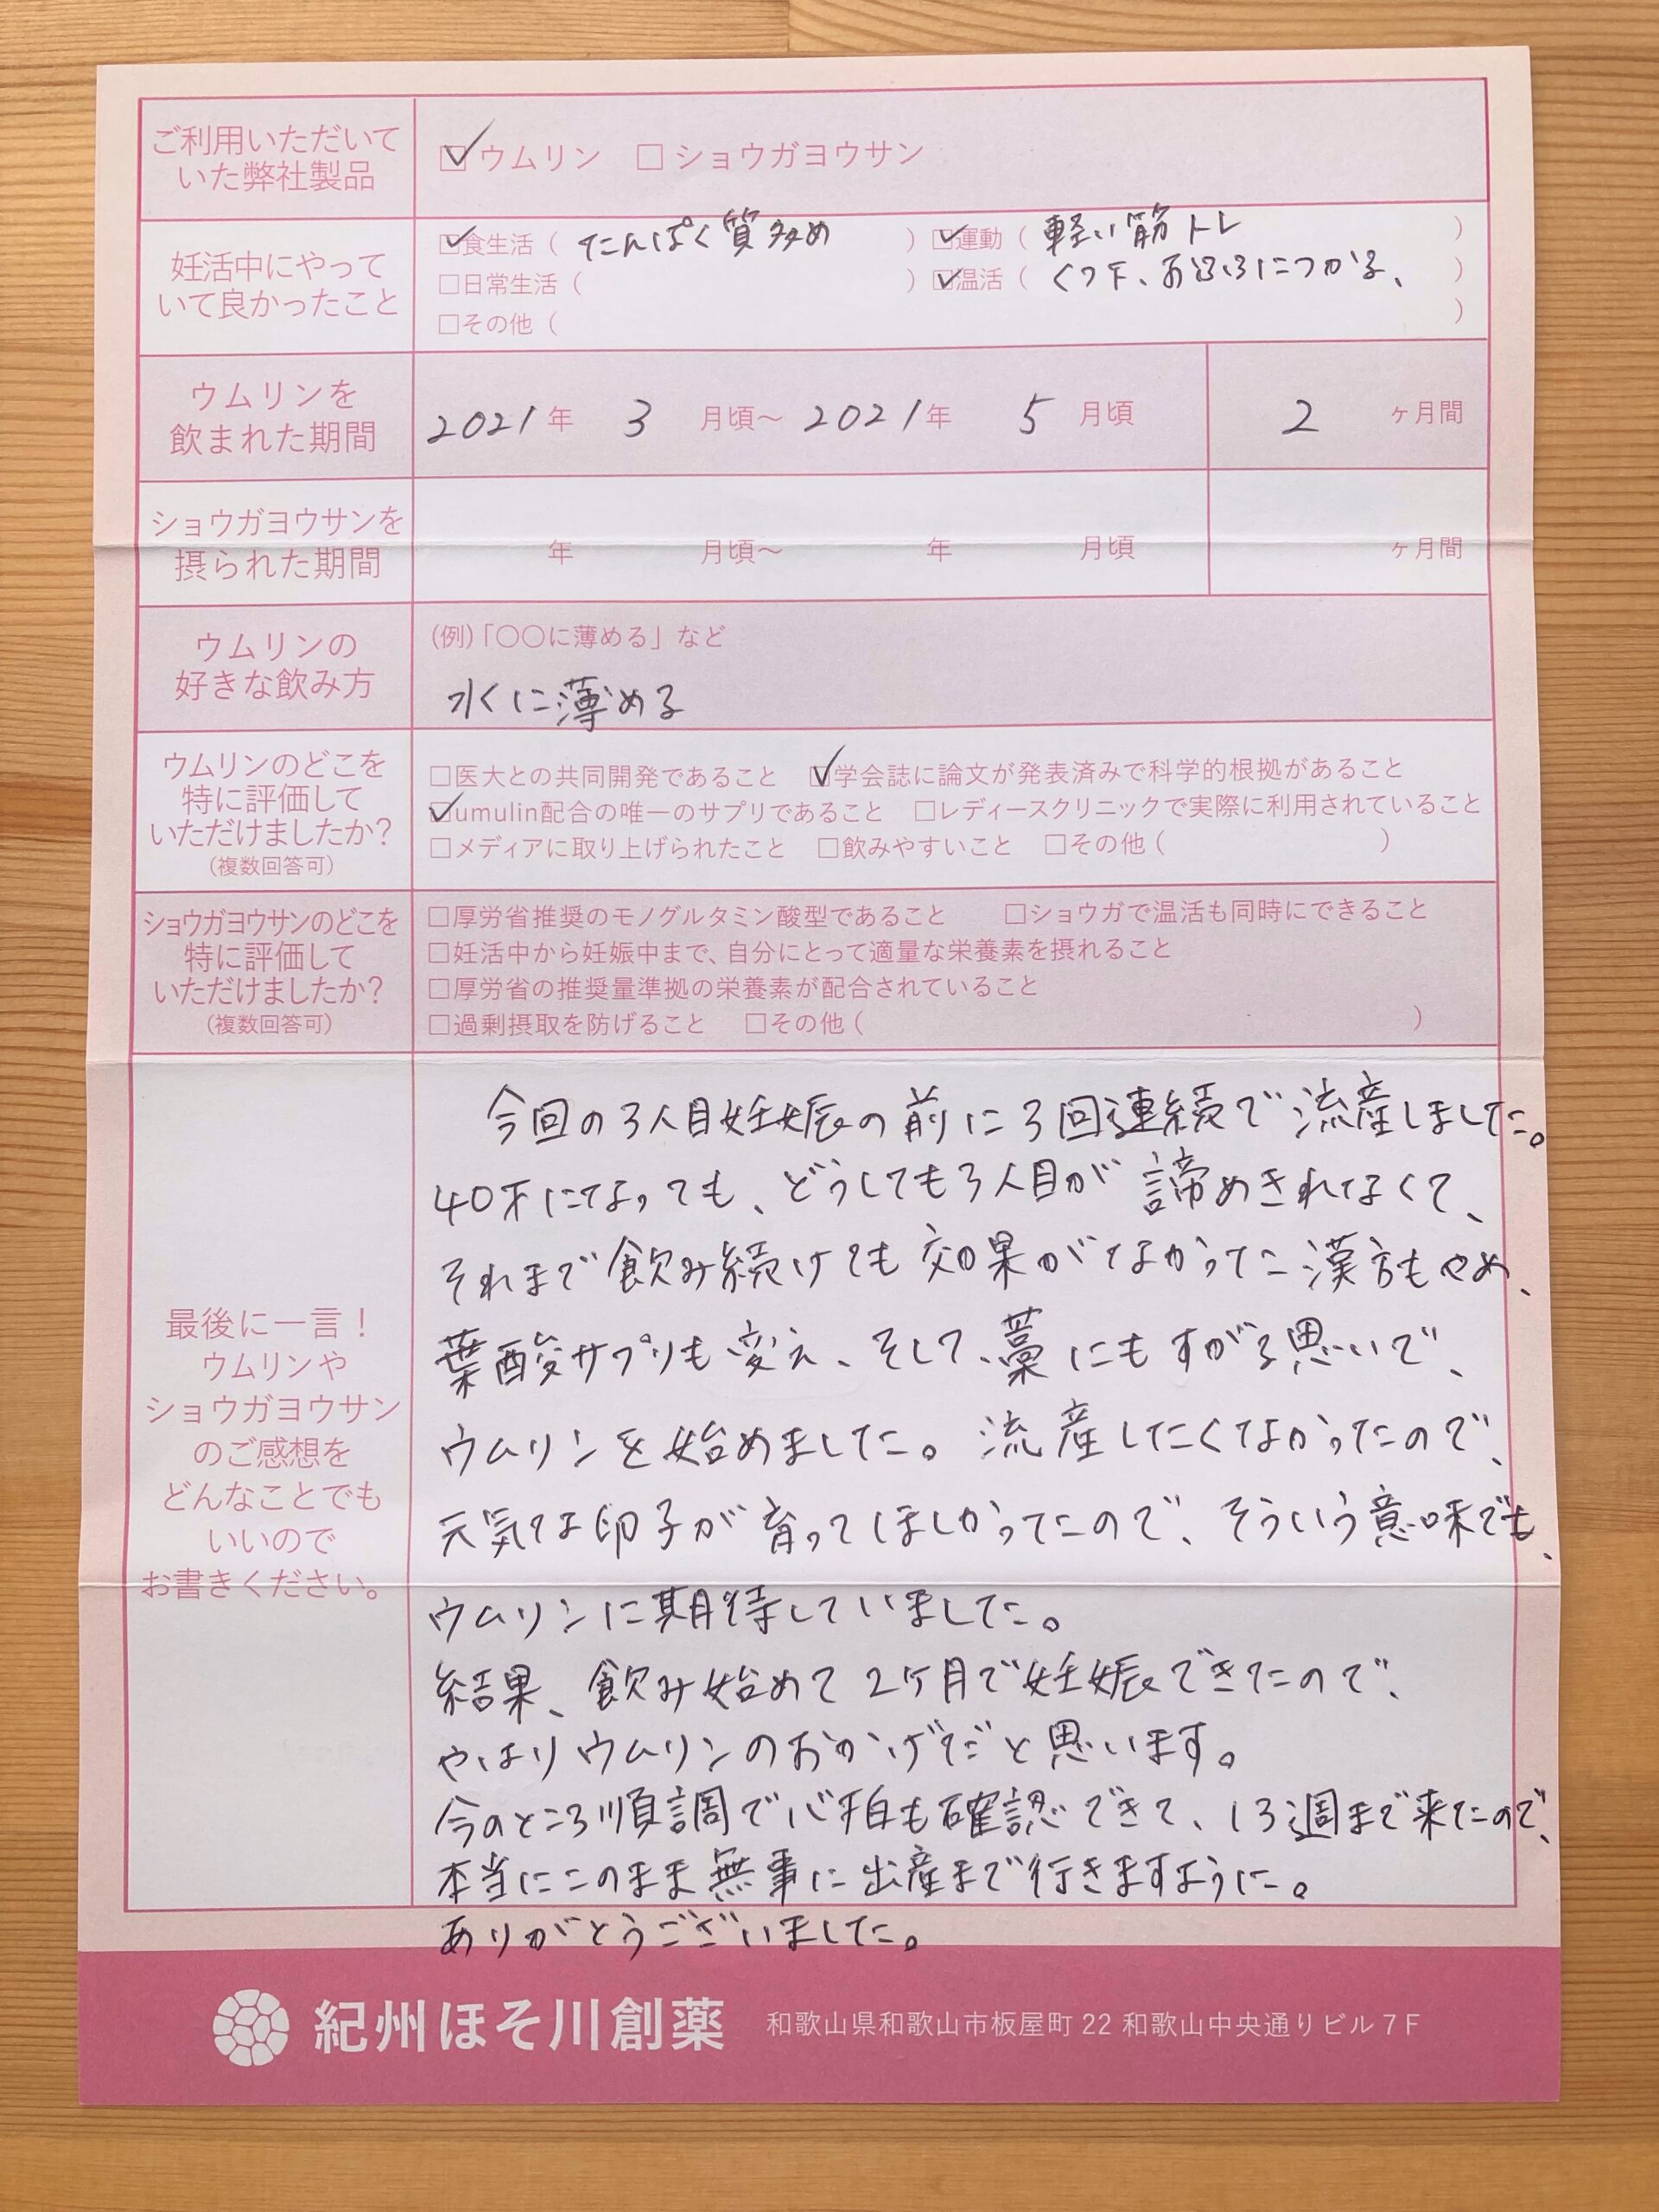 ご利用いただいて
いた弊社製品
☑ウムリン □ショウガヨウサン
妊活中にやって
いて良かったこと
☑食生活（たんぱく質多め）☑運動（軽い筋トレ）
□日常生活（ ）☑温活（くつ下、お風ふにつかる、）
□その他（ ）
ウムリンを
飲まれた期間
2021年 3月頃〜2021年 5月頃 2ヶ月間
ショウガヨウサンを
摂られた期間
年 月頃〜 年 月頃 ヶ月間
ウムリンの
好きな飲み方
(例)「〇〇に薄める」など
水に薄める
ウムリンのどこを
特に評価して
いただけましたか?
(複数回答可)
□医大との共同開発であること ☑学会誌に論文が発表済みで科学的根拠があること
☑umulin配合の唯一のサプリであること □レディースクリニックで実際に利用されていること
□メディアに取り上げられたこと □飲みやすいこと □その他（ ）
ショウガヨウサンのどこを
特に評価して
いただけましたか?
(複数回答可)
□厚労省推奨のモノグルタミン酸型であること □ショウガで温活も同時にできること
□妊活中から妊娠中まで、自分にとって適量な栄養素を摂れること
□厚労省の推奨量準拠の栄養素が配合されていること
□過剰摂取を防げること □その他（ ）
最後に一言！
ウムリンや
ショウガヨウサン
のご感想を
どんなことでも
いいので
お書きください。
今回の3人目妊娠の前に3回連続で流産しました。
40才になっても、どうしても3人目が諦めきれなくて、
それまで飲み続けても効果がなかった漢方もやめ、
葉酸サプリも変え、そして、藁にもすがる思いで、
ウムリンを始めました。流産したくなかったので、
元気な卵子が育ってほしかったので、そういう意味でも、
ウムリンに期待していました。
結果、飲み始めて2ヶ月で妊娠できたので、
やはりウムリンのおかげだと思います。
今のところ順調で心拍も確認できて、13週まで来たので、
本当にこのまま無事に出産まで行きますように。
ありがとうございました。
紀州ほそ川創薬 和歌山県和歌山市板屋町 22 和歌山中央通りビル 7 F